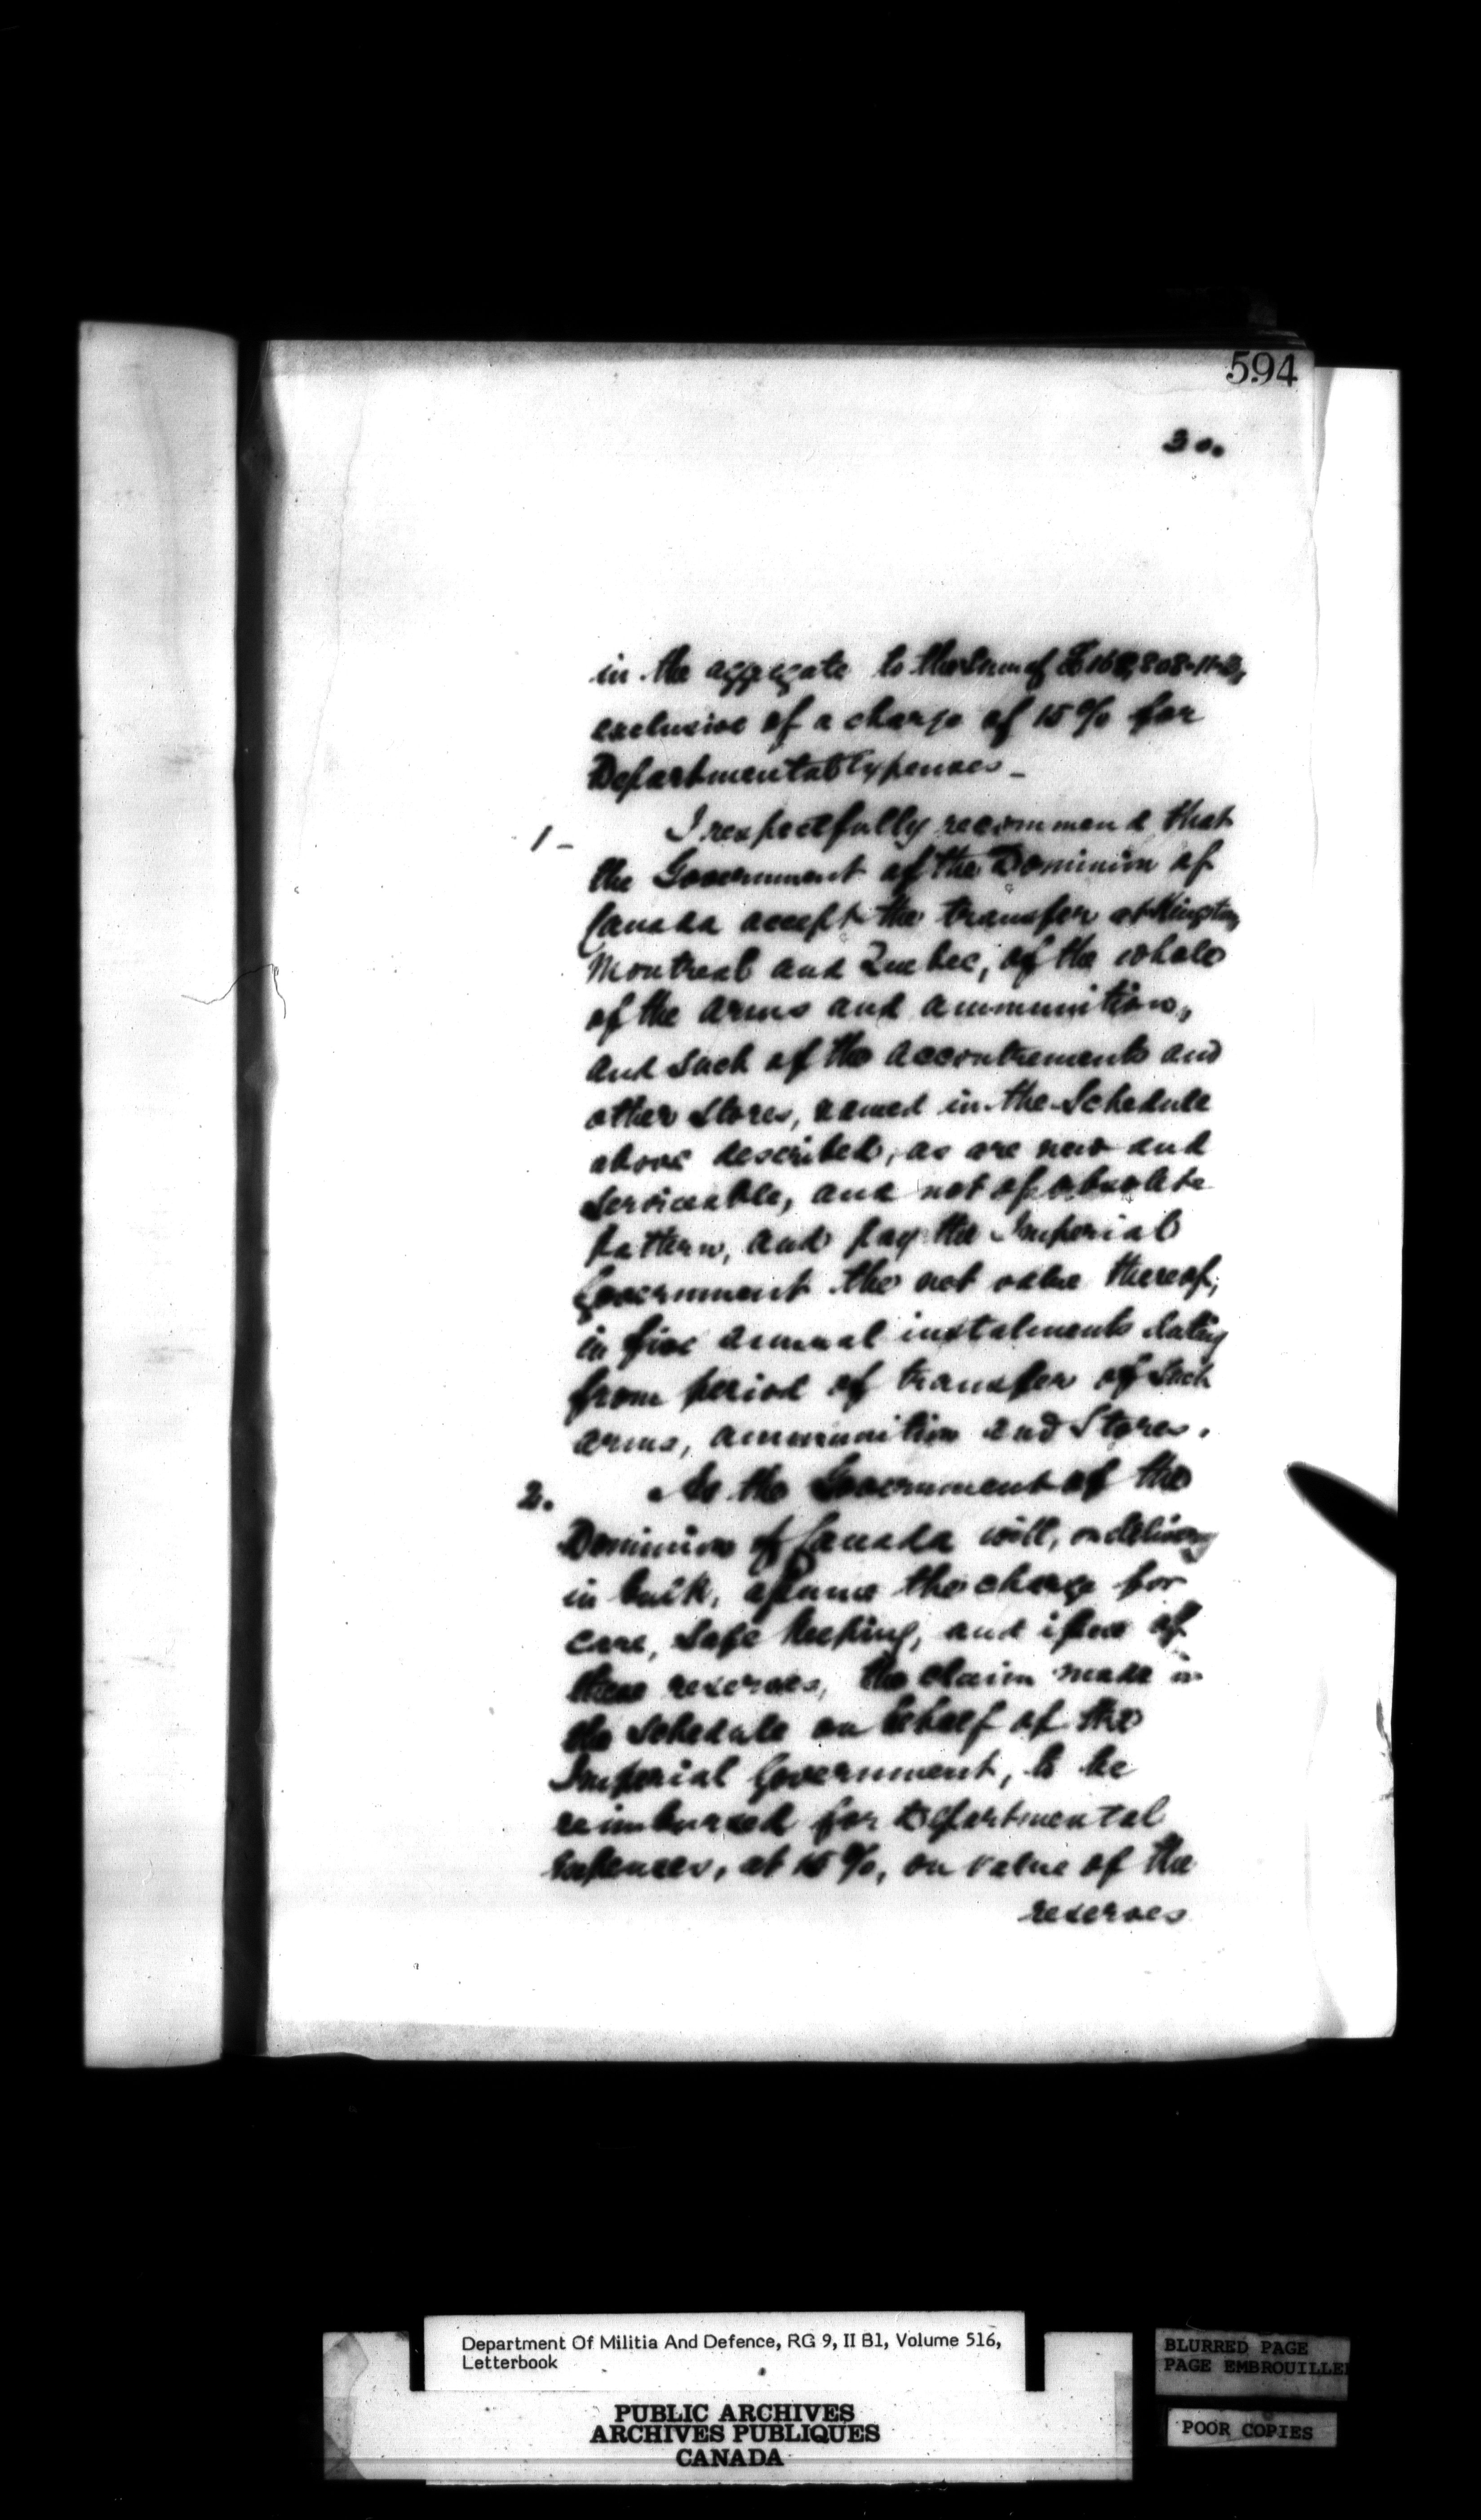 594
30.
in the aggregate to the Sum of
exclusive of a charge of 15% for
Departmental Expenses_
1- I respectfully recommend that
the Government of the Dominion of
Canada accept the transfer at Kingston,
Montreal and Quebec, of the whole
of the Arms and Ammunition,
and such of the accoutrements and
other Stores, named in the Schedule
above described, as are new and
Serviceable, and not of obsolete
pattern, and pay the Imperial
Government the net value thereof,
in five annual instalments dating
from period of transfer of such
arms, ammunition and Stores.
2. As the Government of the
Dominion of Canada will, on delivery
in bulk, assume the charge for
care, safe keeping, and issue of
these reserves, the claim made in
the Schedule on behalf of the
Imperial Government, to be
reimbursed for Departmental
Expenses, at 15%, on value of the
reserves
Department Of Militia And Defence, RG 9, II B1, Volume 516,
Letterbook
PUBLIC ARCHIVES
ARCHIVES PUBLIQUES
CANADA
BLURRED PAGE
PAGE EMBROUILLE
POOR COPIES